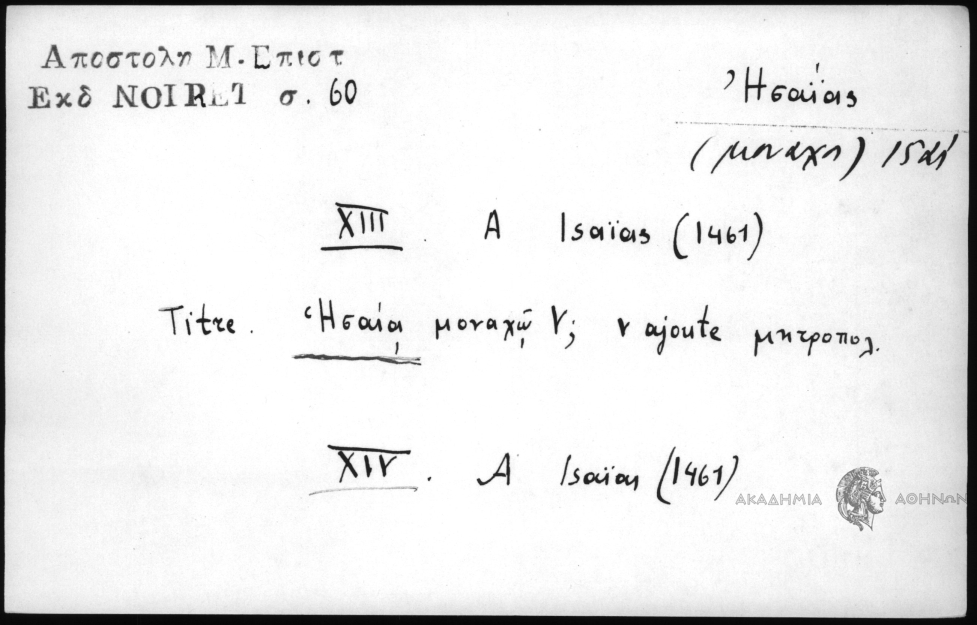 Αποστολη Μ. Επιστ
Εκδ NOIRET σ. 60
Ἠσαΐας
(μοναχη) 15 αἰ
XIII. A Isaïas (1461)
Titre. Ἡσαίᾳ μοναχῷ V; v ajoute μητροπολ.
XIV. A Isaïas (1461)
ΑΚΑΔΗΜΙΑ ΑΘΗΝΩΝ